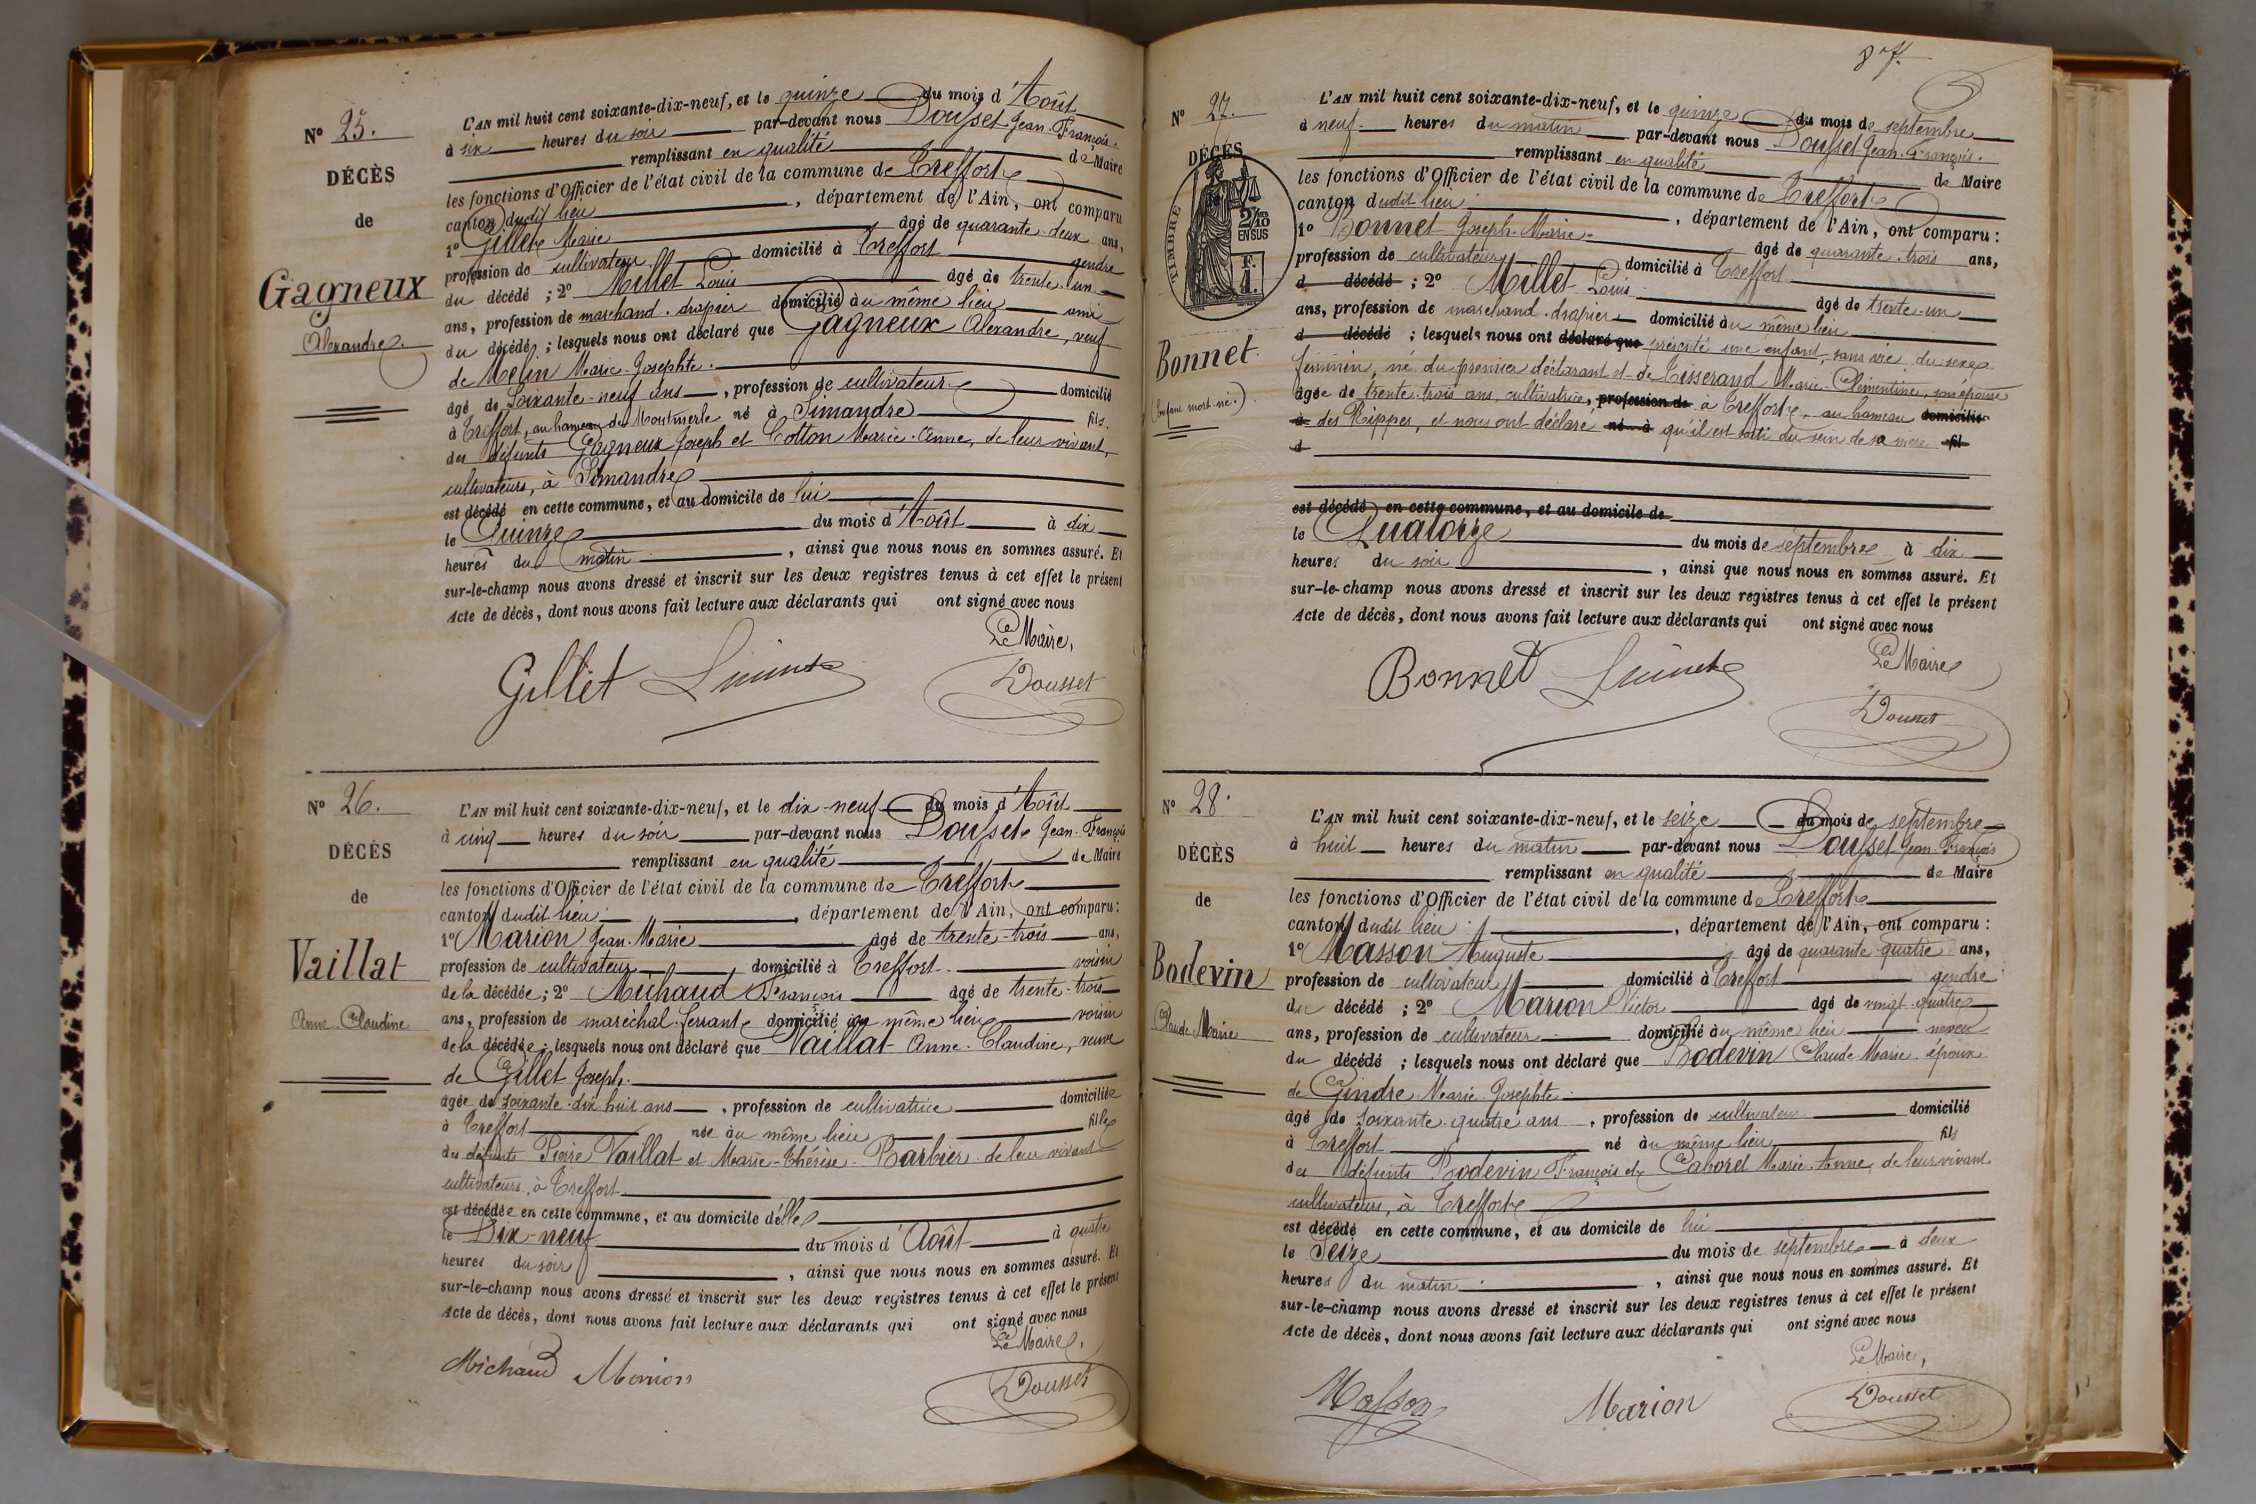 Nº 25.
DÉCÈS
de
Gagneux
Alexandre.
L'AN mil huit cent soixante-dix-neuf, et le quinze du mois d'Août
à six heures du soir par-devant nous Dousset Jean-François
remplissant en qualité de Maire
les fonctions d'Officier de l'état civil de la commune de Treffort
canton dudit lieu, département de l'Ain, ont comparu
1º Gillet Marie âgé de quarante-deux ans,
profession de cultivateur domicilié à Treffort gendre
du décédé ; 2º Millet Louis âgé de trente-un
ans, profession de marchand-drapier domicilié au même lieu ami
du décédé ; lesquels nous ont déclaré que Gagneux Alexandre, veuf
de Melin Marie-Josephte.
âgé de Soixante-neuf ans, profession de cultivateur domicilié
à Treffort, au hameau de Montmerle né à Simandre fils
des défunts Gagneux Joseph et Cotton Marie-Anne, de leur vivant,
cultivateurs, à Simandre
est décédé en cette commune, et au domicile de lui
le Quinze du mois d'Août à dix
heures du matin, ainsi que nous nous en sommes assuré. Et
sur-le-champ nous avons dressé et inscrit sur les deux registres tenus à cet effet le présent
Acte de décès, dont nous avons fait lecture aux déclarants qui ont signé avec nous
Le Maire,
Gillet
Dousset
Nº 26.
DÉCÈS
de
Vaillat
Anne-Claudine
L'AN mil huit cent soixante-dix-neuf, et le dix-neuf du mois d'Août
à cinq heures du soir par-devant nous Dousset Jean-François
remplissant en qualité de Maire
les fonctions d'Officier de l'état civil de la commune de Treffort
canton dudit lieu, département de l'Ain, ont comparu :
1º Marion Jean-Marie âgé de trente-trois ans,
profession de cultivateur domicilié à Treffort voisin
de la décédée ; 2º Michaud François âgé de trente-trois
ans, profession de maréchal-ferrant domicilié au même lieu voisin
de la décédée ; lesquels nous ont déclaré que Vaillat Anne-Claudine, veuve
de Gillet Joseph.
âgée de soixante-dix huit ans, profession de cultivatrice domiciliée
à Treffort née au même lieu fille
des défunts Pierre Vaillat et Marie-Thérèse Barbier de leur vivant
cultivateurs, à Treffort
est décédée en cette commune, et au domicile d'elle
le Dix-neuf du mois d'Août à quatre
heures du soir, ainsi que nous nous en sommes assuré. Et
sur-le-champ nous avons dressé et inscrit sur les deux registres tenus à cet effet le présent
Acte de décès, dont nous avons fait lecture aux déclarants qui ont signé avec nous
Le Maire,
Michaud Marion
Dousset
87.
Nº 27.
DÉCÈS
de
TIMBRE
2/10
EN SUS
F.
1.
Bonnet
(enfant mort-né.)
L'AN mil huit cent soixante-dix-neuf, et le quinze du mois de septembre
à neuf heures du matin par-devant nous Dousset Jean-François.
remplissant en qualité de Maire
les fonctions d'Officier de l'état civil de la commune de Treffort
canton dudit lieu, département de l'Ain, ont comparu :
1º Bonnet Joseph-Marie âgé de quarante-trois ans,
profession de cultivateur domicilié à Treffort
d décédé ; 2º Millet Louis âgé de trente-un
ans, profession de marchand-drapier domicilié au même lieu
d décédé ; lesquels nous ont déclaré que présenté une enfant, sans vie, du sexe
féminin, né du premier déclarant et de Tisserand Marie-Clémentine, son épouse
âgée de trente-trois ans, cultivatrice, profession de à Treffort, au hameau domicilié
à des Rippes, et nous ont déclaré né à qu'il est sorti du sein de sa mère fil
d
est décédé en cette commune, et au domicile de
le Quatorze du mois de septembre à dix
heures du soir, ainsi que nous nous en sommes assuré. Et
sur-le-champ nous avons dressé et inscrit sur les deux registres tenus à cet effet le présent
Acte de décès, dont nous avons fait lecture aux déclarants qui ont signé avec nous
Le Maire
Bonnet
Dousset
Nº 28.
DÉCÈS
de
Bodevin
Claude-Marie
L'AN mil huit cent soixante-dix-neuf, et le seize du mois de septembre
à huit heures du matin par-devant nous Dousset Jean-François
remplissant en qualité de Maire
les fonctions d'Officier de l'état civil de la commune de Treffort
canton dudit lieu, département de l'Ain, ont comparu :
1º Masson Auguste âgé de quarante-quatre ans,
profession de cultivateur domicilié à Treffort gendre
du décédé ; 2º Marion Victor âgé de vingt-quatre
ans, profession de cultivateur domicilié au même lieu neveu
du décédé ; lesquels nous ont déclaré que Bodevin Claude-Marie, époux
de Gindre Marie-Josephte.
âgé de Soixante-quatre ans, profession de cultivateur domicilié
à Treffort né au même lieu fils
des défunts Bodevin François et Caborel Marie-Anne, de leur vivant
cultivateurs, à Treffort
est décédé en cette commune, et au domicile de lui
le Seize du mois de septembre à deux
heures du matin, ainsi que nous nous en sommes assuré. Et
sur-le-champ nous avons dressé et inscrit sur les deux registres tenus à cet effet le présent
Acte de décès, dont nous avons fait lecture aux déclarants qui ont signé avec nous
Le Maire,
Masson Marion
Dousset